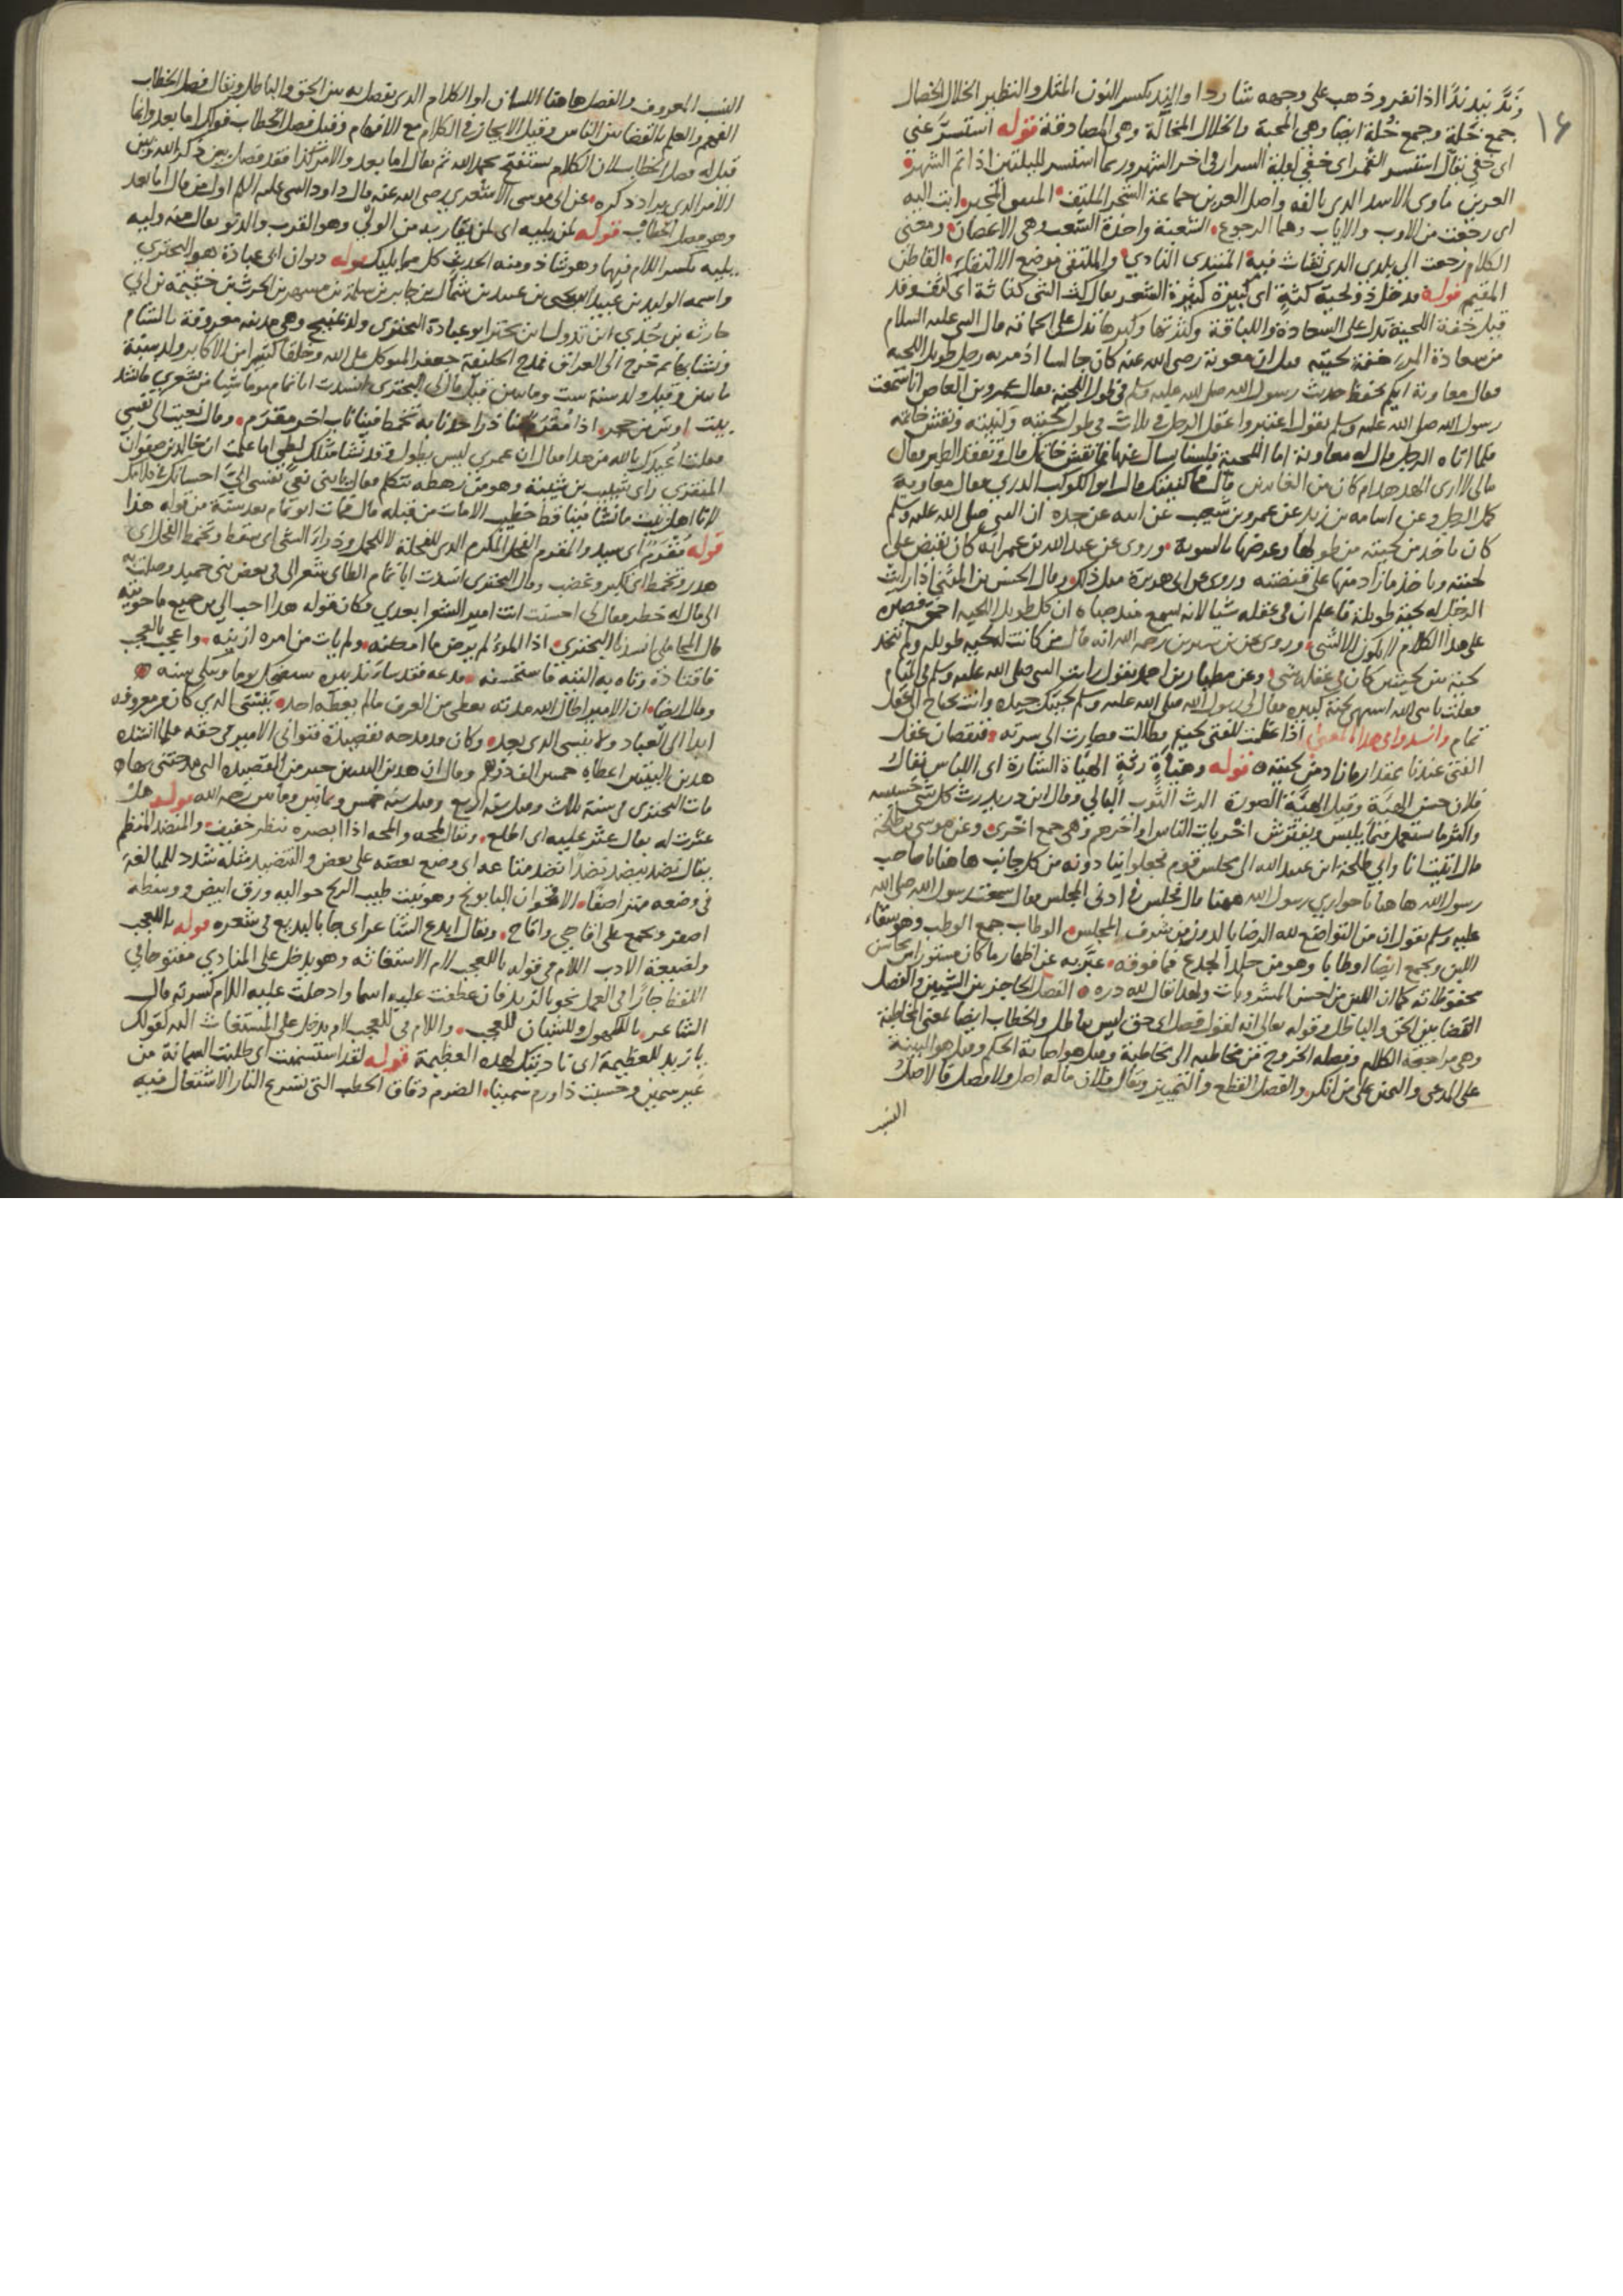 ١٤
وندّ يند ندّا اذا نفر وذهب على وجهه شاردا والند بكسر النون المثل والنظير الخلال الخصال
جمع خلة وجمع خُلة ايضا وهى المحبة والخلال المخالّة وهى المصادقة قوله استسرّ عني
اى خفي يقال استسر القمر اى خفي ليلة السرار فى اخر الشهر وربما استسر لليلتين اذا تم الشهر
العرين مأوى الاسد الذى يالفه واصل العرين جماعة الشجر الملتف ابت اليه
اى رجعت من الاوب والاياب وهما الرجوع الشعبة واحدة الشعب وهى الاغصان ومعنى
الكلام رجعت الى بلدى الذى نبات فيه المنتدى النادي والملتقى موضع الالتقاء القاطن
المقيم قوله فدخل ذو لحية كثة اى كبيرة كثيرة الشعر يقال كث الشئ كثاثة اى كثف وقد
قيل خفة اللحية تدل على السعادة واللباقة وكثرتها وكبرها تدل على الحماقة قال النبى عليه السلام
من سعادة المرء خفة لحيته قيل ان معوية رضى الله عنه كان جالسا اذ مر به رجل طويل اللحية
فقال معاوية ايكم يحفظ حديث رسول الله صلى الله عليه وسلم فى طول اللحية فقال عمرو بن العاص انا سمعت
رسول الله صلى الله عليه وسلم يقول اعتبروا عقل الرجل فى ثلاث فى طول لحيته وكنيته ونقش خاتمه
فلما اتاه الرجل قال له معاوية اما اللحية فلسنا نسال عنها فما نقش خاتمك قال وتفقد الطير فقال
مالى لا ارى الهدهد ام كان من الغائبين قال فما كنيتك قال ابو الكوكب الدرى فقال معاوية
كمل الرجل وعن اسامة بن زيد عن عمرو بن شعيب عن ابيه عن جده ان النبى صلى الله عليه وسلم
كان ياخذ من لحيته من طولها وعرضها بالسوية وروى عن عبد الله بن عمر انه كان يقبض على
لحيته وياخذ ما زاد منها على قبضته وروى عن ابى هريرة مثل ذلك وقال الحسن بن المثنى اذا رايت
الرجل له لحية طويلة فاعلم ان فى عقله شيا
على هذا الكلام وروى عن بن سيرين رحمه الله انه قال من كانت له لحية طويلة ولم يتخذ
لحية بين لحيتين كان فى عقله شئ وعن احمد يقول رايت النبى صلى الله عليه وسلم فى المنام
فقلت يا نبى الله اشتهى لحية كبيرة فقال لى رسول الله صلى الله عليه وسلم لحيتك جيدة وانت تحتاج الى عقل
تمام وانشدوا فى هذا المعنى اذا عظمت للفتى لحية فطالت فصارت الى سرته فنقصان عقل
الفتى عندنا بمقدار ما زاد من لحيته قوله وهيأة رثة الهيأة الشارة اى اللباس يقال
فلان حسن الهيئة وقيل الهيئة الصورة الرث الثوب البالي وقال ابن دريد رث كل شئ خسيسه
واكثر ما يستعمل فيما يلبس ويفترش اخريات الناس اواخرهم وهى جمع اخرى وعن موسى بن طلحة
قال اتيت انا وابي طلحة ابن عبيد الله الى مجلس قوم فجعلوا ينادونه من كل جانب هاهنا يا صاحب
رسول الله هاهنا يا حواري رسول الله ههنا قال فجلس فى ادنى المجلس وقال سمعت رسول الله صلى الله
عليه وسلم يقول ان من التواضع لله الرضا بالدون من شرف المجلس الوطاب جمع الوطب وهو سقاء
اللبن ويجمع ايضا اوطابا وهو من جلد الجذع فما فوقه عبّر به عن اظهار ما كان مستورا
محفوظا كما ان اللبن من احسن المشروبات ولهذا يقال لله دره الفصل الحاجز بين الشيئين والفصل
القضا بين الحق والباطل وقوله تعالى انه لقول فصل اى حق ليس بباطل والخطاب ايضا بمعنى المخاطبة
وهى مراجعة الكلام وفصله الخروج من مخاطبة الى مخاطبة وقيل هو اصابة الحكم وقيل هو البينة
على المدعى واليمين على من انكر والفصل القطع والتمييز ويقال فلان ماله اصل ولا فصل فالاصل
النسب المعروف والفصل هاهنا اللسان او الكلام الذى يفصل به بين الحق والباطل ويقال فصل الخطاب
الفهم والعلم بالقضا بين الناس وقيل الايجاز فى الكلام مع الافهام وقيل فصل الخطاب قولك اما بعد وانما
قيل له فصل الخطاب لان الكلام يستفتح بحمد الله ثم يقال اما بعد والامر كذا فقد فصل بين ذكر الله وبين
الامر الذى يراد ذكره عن ابى موسى الاشعرى رضى الله عنه قال داود النبى عليه السلام اول من قال اما بعد
وهو فصل الخطاب قوله لمن يليه اى لمن يقاربه من الولي وهو القرب والدنو يقال منه وليه
يليه بكسر اللام فيهما وهو شاذ ومنه الحديث كل مما يليك قوله ديوان ابى عبادة هو البحترى
واسمه الوليد بن عبيد بن يحيى بن عبيد بن شملال بن جابر بن سلمة بن مسهر بن الحرث بن خثيمة بن ابي
حارثة بن جُدي ابن تدول ابن بحتر ابو عبادة البحترى ولد بمنبج وهى مدينة معروفة بالشام
ونشأ بها ثم خرج الى العراق فمدح الخليفة جعفر المتوكل على الله وخلقا كثيرا من الاكابر ولد سنة
مايتين وقيل ولد سنة ست ومايتين قيل قال لى البحترى انشدت ابا تمام يوما شيا من شعري فانشد
بيت اوس بن حجر اذا مقرم منا ذرا حد نابه تخمط فينا ناب اخر مقرم وقال نعيت الى نفسي
فقلت اعيذك بالله من هذا فقال ان عمرى ليس يطول وقد نشأ مثلك لطى اما علمت ان خالد بن صفوان
المنقرى رأى شبيب بن شيبة وهو من رهطه يتكلم فقال يا بنى نعى نفسى اليّ احسانك فى كلامك
لانا اهل بيت ما نشأ فينا قط خطيب الا مات من قبله قال فمات ابو تمام بعد سنة من قوله هذا
قوله مُقرَم اى سيد والمقرم الفحل المكرم الذى للفحلة لا للحمل وذرا
هدر وتخمط اى تكبر وغضب وقال البحترى انشدت ابا تمام الطاى شعرا لى فى بعض بنى حميد وصلت به
الى مال له خطر فقال لى احسنت انت امير الشعرا بعدي فكان قوله هذا احب الى من جميع ما حويته
قال المحاملى انشدنا البحترى اذا المرء لم يرض ما امكنه ولم يات من امره ازينه واعجب بالعجب
فاقتاده وتاه به التيه فاستحسنه فدعه فقد ساء تدبيره سيضحك يوما ويبكى سنه
وقال ايضا ان الامير اطال الله مدته يعطى من العرف ما لم يعطه احد ينسى الذى كان من معروفه
ابدا الى العباد ولا ينسى الذى يعد وكان قد مدحه بقصيدة فتوانى الامير فى حقه فلما انشده
هذين البيتين اعطاه خمس الف درهم وقال ان هذين البيتين خير من القصيدة التى مدحتنى بها
مات البحترى فى سنة ثلاث وقيل سنة اربع وقيل سنة خمس وثمانين ومايتين رحمه الله قوله هل
عثرت له يقال عثر عليه اى اطلع ويقال لمحه والمحه اذا ابصره بنظر خفيف والمنضد المنظم
يقال نضد ينضد نضدا نضد متاعه اى وضع بعضه على بعض والتنضيد مثله شدد للمبالغة
فى وضعه متراصفا الاقحوان البابونج وهو نبت طيب الريح حواليه ورق ابيض ووسطه
اصفر ويجمع على اقاحي واقاح ويقال ابدع الشاعر اى جا بالبديع فى شعره قوله يا للعجب
ولضيعة الادب اللام فى قوله يا للعجب لام الاستغاثة وهو يدخل على المنادي مفتوحا فى
اللفظ جارا فى العمل نحو يا لزيد فان عطفت عليه اسما وادخلت عليه اللام كسرته قال
الشاعر يا للكهول وللشبان للعجب واللام فى للعجب لام يدخل على المستغاث له كقولك
يا زيد للعظيمة اى ناديتك لهذه العظيمة قوله لقد استسمنت اى طلبت السمانة من
غير سمين وحسبت ذا ورم سمينا الضرم دقاق الحطب التى تسرع النار الاشتعال فيه